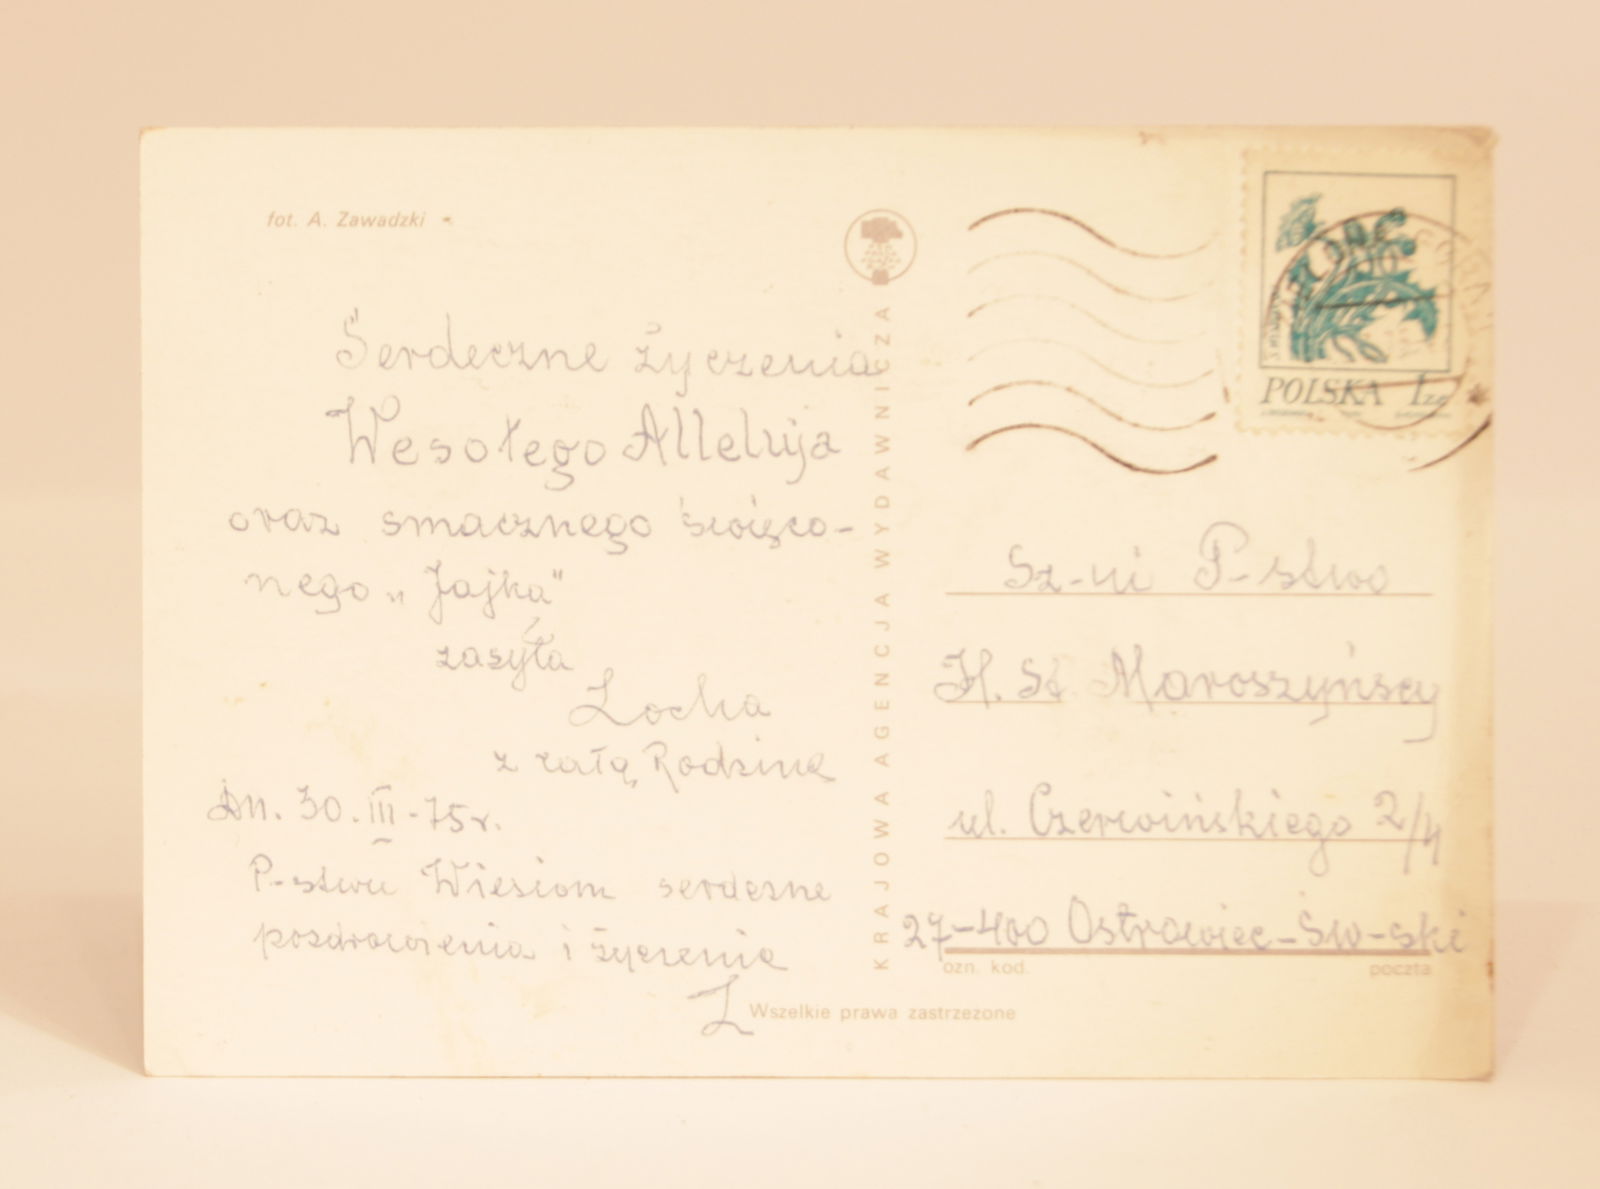 fot. A. Zawadzki
Serdeczne życzenia
Wesołego Alleluja
oraz smacznego święco-
nego „Jajka"
zasyła
Locha
z całą Rodziną
Dn. 30.III-75r.
P-stwu Wiesiom serdeczne
pozdrowienia i życzenia
L
KRAJOWA AGENCJA WYDAWNICZA
Wszelkie prawa zastrzeżone
POLSKA 1 ZŁ
Sz-ni P-stwo
H. St. Maroszyńscy
ul. Czerwińskiego 2/4
27-400 Ostrowiec-Św-ski
ozn. kod. poczta